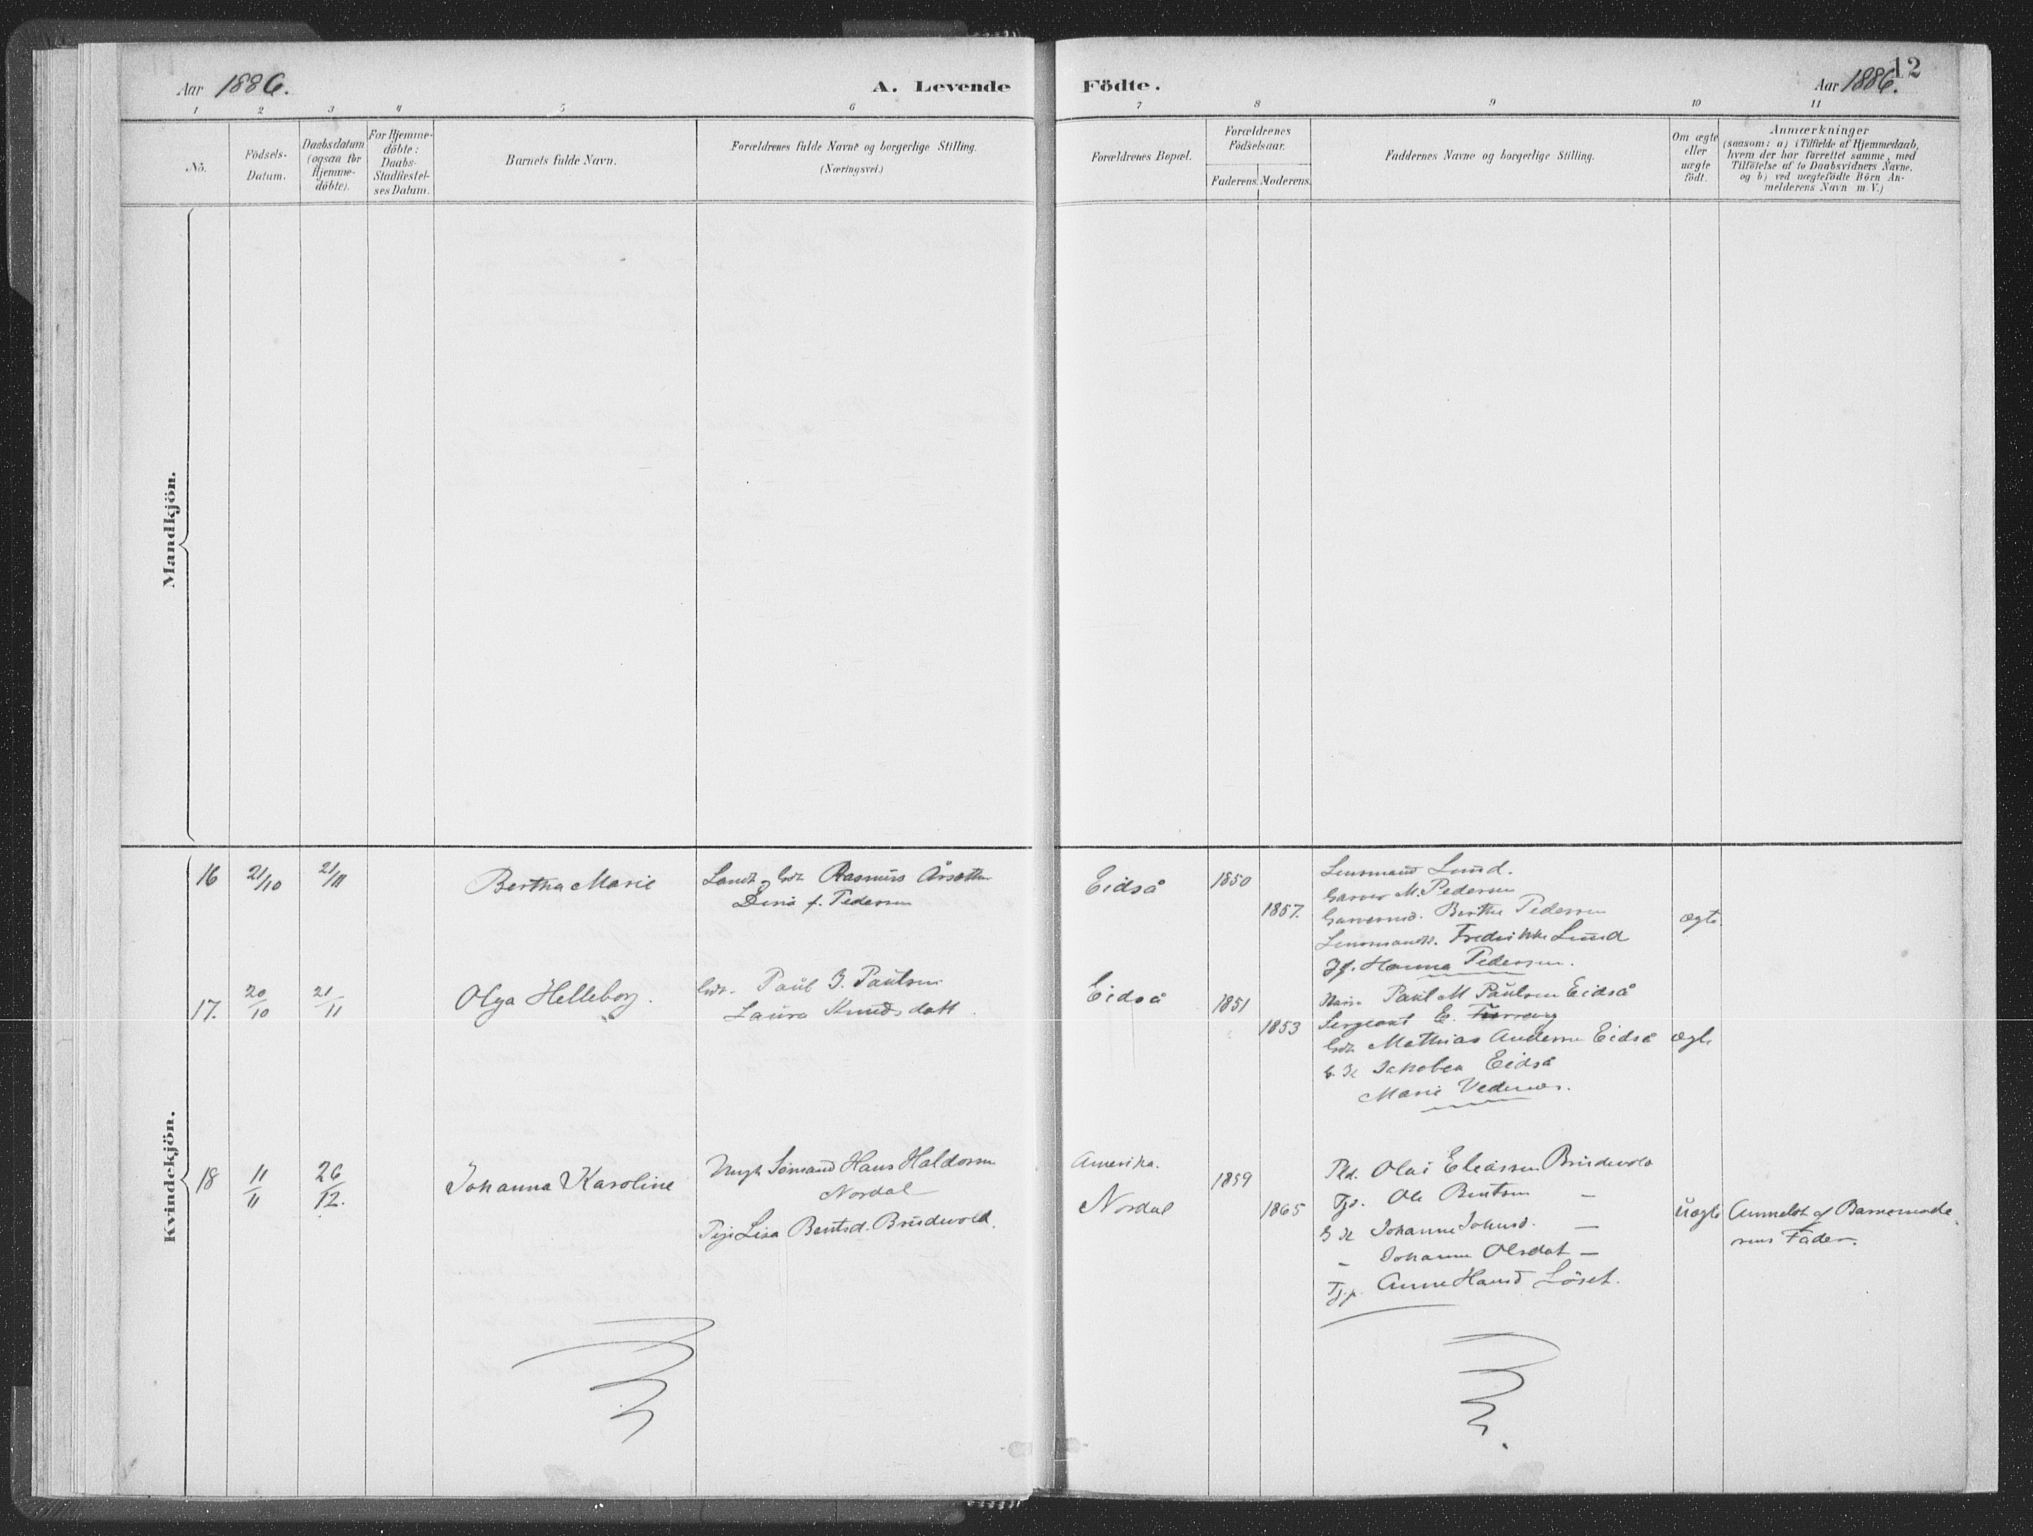 12
Aar 1886.
A. Levende
Födte.
Aar 1886.
1 2 3 4 5 6 7 8 9 10 11
No.
Födsels-
Datum.
Daabsdatum
(ogsaa for
Hjemme-
döbte).
For Hjemme-
döbte:
Daabs-
Stadfæstel-
ses Datum.
Barnets fulde Navn.
Forældrenes fulde Navne og borgerlige Stilling.
(Næringsvei.)
Forældrenes Bopæl.
Forældrenes
Födselsaar.
Faderens. Moderens.
Faddernes Navne og borgerlige Stilling.
Om ægte
eller
uægte
födt.
Anmærkninger
(saasom: a) i Tilfælde af Hjemmedaab,
hvem der har forrettet samme, med
Tilföielse af to Daabsvidners Navne.
og b) ved uægtefödte Börn An-
melderens Navn m. V.)
Mandkjön.
Kvindekjön.
16
21/10
21/11
Bertha Marie
Rasmus Årsether
Dina f. Pedersen
Eidså
1850
1857.
Lensmand Lund.
Garver M. Pedersen
Berthe Pedersen
Fredrikke Lund
Jf. Hanna Pedersen.
ægte
17.
20/10
21/11
Olga Helleborg.
Paul J. Paulsen
Laura Knudsdatt.
Eidså
1851
1853
Paul M Paulsen Eidså
Sergeant E.
Mathias Andersen Eidså
Jakobea Eidså
Marie Vedenes.
ægte
18
11/11
26/12.
Johanna Karoline
Ungk Sømand Hans Haldorsen
Nordal
Pige Lisa Bentsd. Brudevold.
Amerika.
Nordal
1859
1865
Olai Eliassen Brudevold
Tjd. Ole Bentsen —
G K Johanne Johnsd. —
„ Johanne Olsdat —
Tjp. Anne Hansd Löset.
uægte
Anmeldt af Barnemode-
rens Fader.